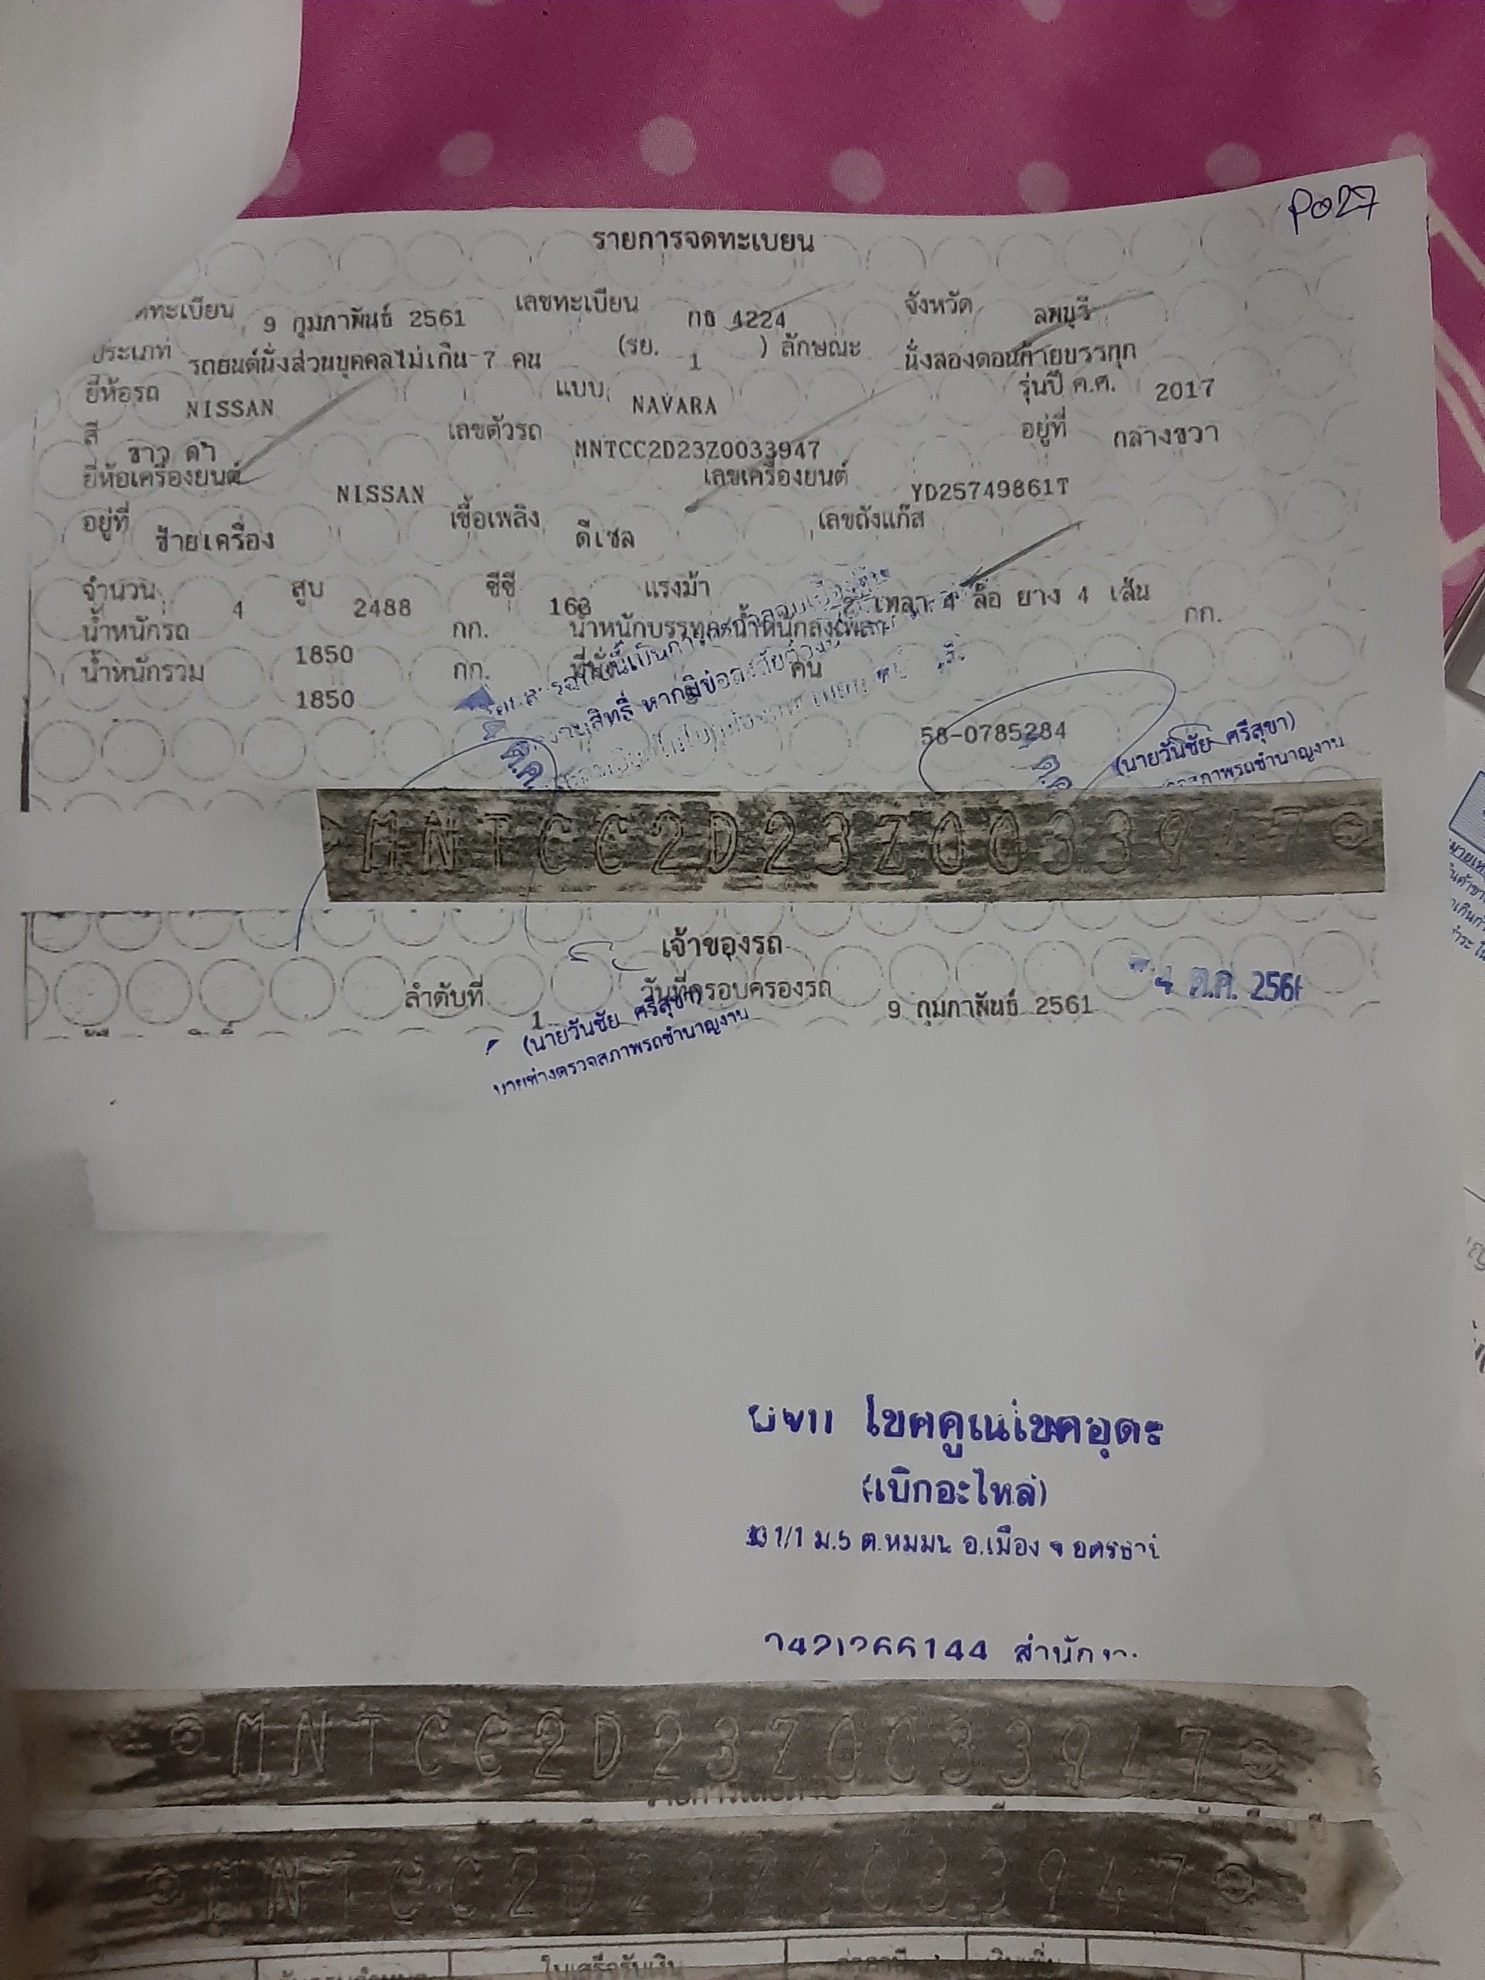 P027
รายการจดทะเบียน
ทะเบียน 9 กุมภาพันธ์ 2561 เลขทะเบียน กธ 4224 จังหวัด ลพบุรี
ประเภท รถยนต์นั่งส่วนบุคคลไม่เกิน 7 คน (รย. 1 ) ลักษณะ นั่งสองตอนท้ายบรรทุก
ยี่ห้อรถ NISSAN แบบ NAVARA รุ่นปี ค.ศ. 2017
สี ขาว ดำ เลขตัวรถ MNTCC2D23Z0033947 อยู่ที่ กลางขวา
ยี่ห้อเครื่องยนต์ NISSAN เลขเครื่องยนต์ YD25749861T
อยู่ที่ ซ้ายเครื่อง เชื้อเพลิง ดีเซล เลขถังแก๊ส
จำนวน 4 สูบ 2488 ซีซี 163 แรงม้า 2 เพลา 4 ล้อ ยาง 4 เส้น
น้ำหนักรถ 1850 กก. น้ำหนักบรรทุก/น้ำหนักลงเพลา กก.
น้ำหนักรวม 1850 กก. ที่นั่ง คน
หากมีข้อสงสัย
58-0785284
(นายวันชัย ศรีสุขา)
ตรวจสภาพรถชำนาญงาน
MNTCC2D23Z0033947
เจ้าของรถ
ลำดับที่ 1 วันที่ครอบครองรถ 9 กุมภาพันธ์ 2561
4 ต.ค. 2561
(นายวันชัย ศรีสุขา)
นายช่างตรวจสภาพรถชำนาญงาน
(เบิกอะไหล่)
ม.5 ต.หมูม่น อ.เมือง จ อุดรธานี
สำนักงาน
MNTCC2D23Z0033947
MNTCC2D23Z0033947
ใบเสร็จรับเงิน